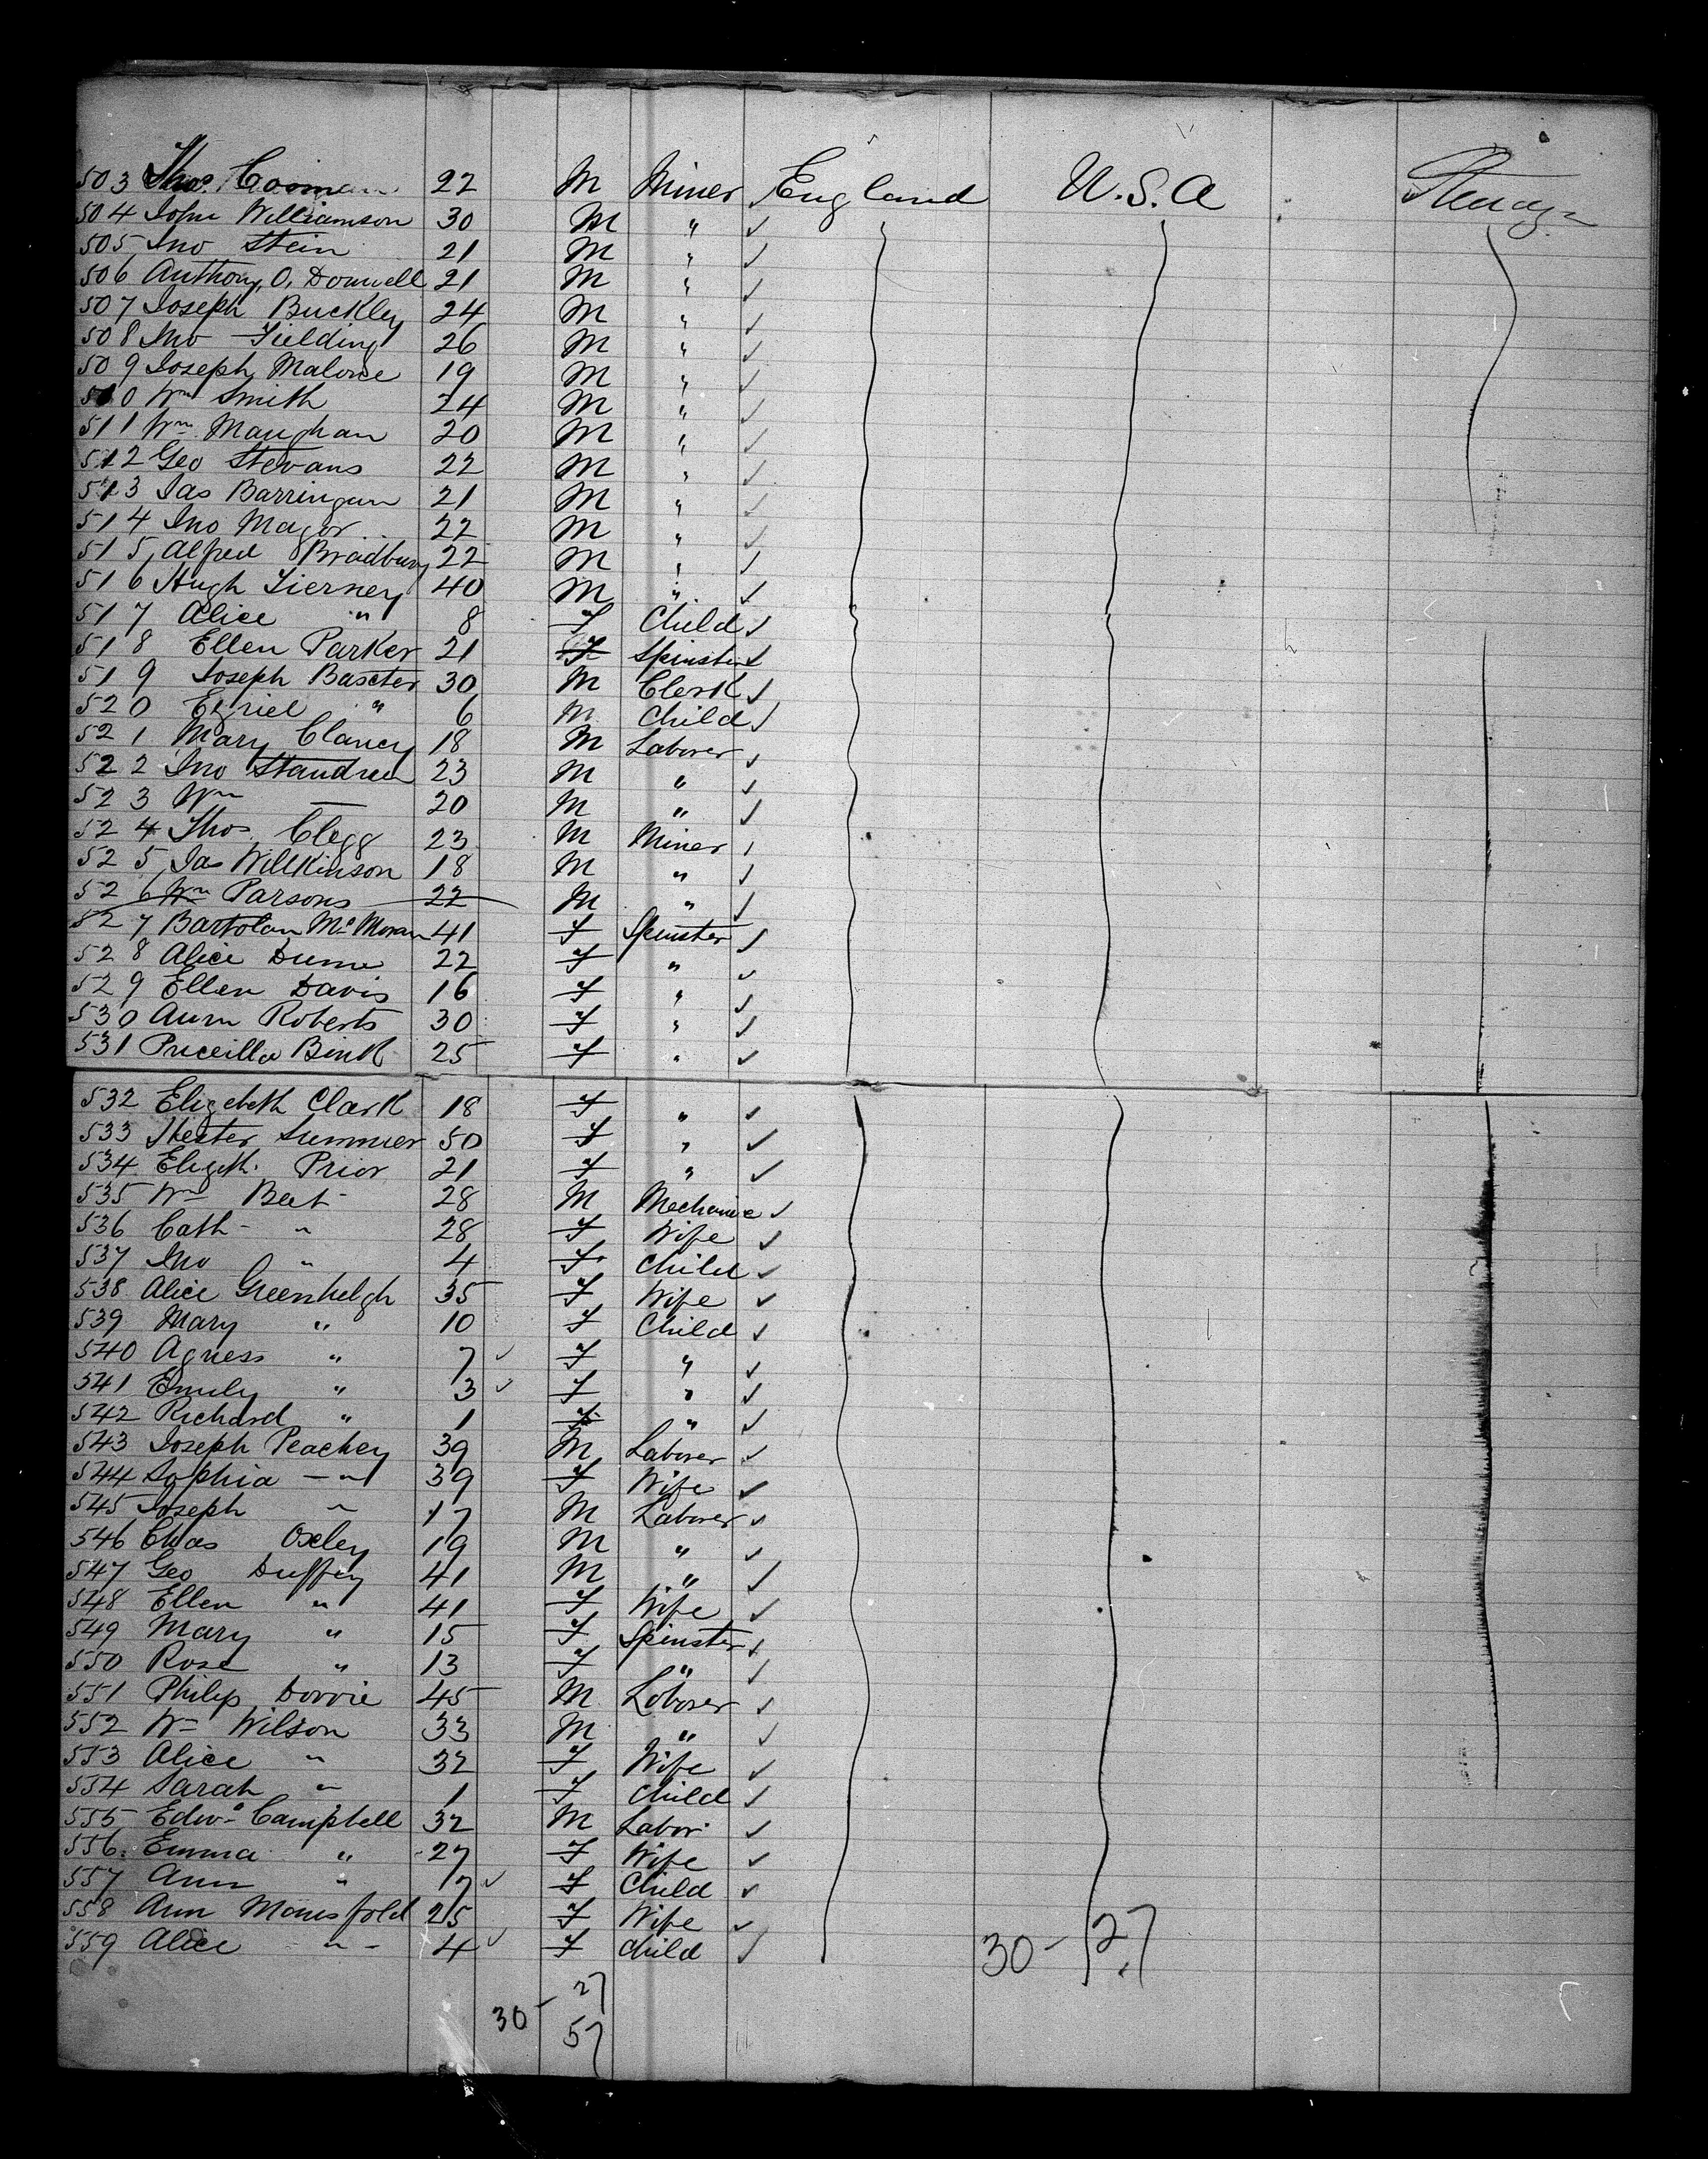 503 Thos. Cooman 22 M Miner England U.S.A Steerage
504 John Williamson 30 M " ✓
505 Jno Stein 21 M " ✓
506 Anthony O. Donnell 21 M " ✓
507 Joseph Buckley 24 M " ✓
508 Jno Fielding 26 M " ✓
509 Joseph Malone 19 M " ✓
510 Wm Smith 24 M " ✓
511 Wm Maughan 20 M " ✓
512 Geo Stevans 22 M " ✓
513 Jas Barringan 21 M " ✓
514 Jno Magor 22 M " ✓
515 Alfred Bradbury 22 M " ✓
516 Hugh Tierney 40 M " ✓
517 Alice " 8 F Child ✓
518 Ellen Parker 21 F Spinster ✓
519 Joseph Baxter 30 M Clerk ✓
520 Ezriel " 6 M Child ✓
521 Mary Clancy 18 M Laborer ✓
522 Jno Standren 23 M " ✓
523 Wm — 20 M " ✓
524 Thos Clegg 23 M Miner ✓
525 Jas Willkinson 18 M " ✓
526 Wm Parsons 22 M " ✓
527 Bartolan Mc Moran 41 F Spinster ✓
528 Alice Dunne 22 F " ✓
529 Ellen Davis 16 F " ✓
530 Ann Roberts 30 F " ✓
531 Pricilla Bink 25 F " ✓
532 Elizebeth Clark 18 F " ✓
533 Hester Sumner 50 F " ✓
534 Elizth. Prior 21 F " ✓
535 Wm Beet 28 M Mechanic ✓
536 Cath " 28 F Wife ✓
537 Jno " 4 F Child ✓
538 Alice Greenhelgh 35 F Wife ✓
539 Mary " 10 F Child ✓
540 Agness " 7 ✓ F " ✓
541 Emily " 3 ✓ F " ✓
542 Richard " 1 F " ✓
543 Joseph Peachey 39 M Laborer ✓
544 Sophia " 39 F Wife ✓
545 Joseph " 17 M Laborer ✓
546 Chas Oxley 19 M " ✓
547 Geo Duffey 41 M " ✓
548 Ellen " 41 F Wife ✓
549 Mary " 15 F Spinster ✓
550 Rose " 13 F " ✓
551 Philip Dovvie 45 M Loborer ✓
552 Wm Wilson 33 M " ✓
553 Alice " 32 F Wife ✓
554 Sarah " 1 F Child ✓
555 Edwd Campbell 32 M Labor ✓
556 Emma " 27 F Wife ✓
557 Ann " 17 ✓ F Child ✓
558 Ann Mansfold 25 F Wife ✓
559 Alice " 4 ✓ F Child ✓ 30 - 27
27
30 -
57